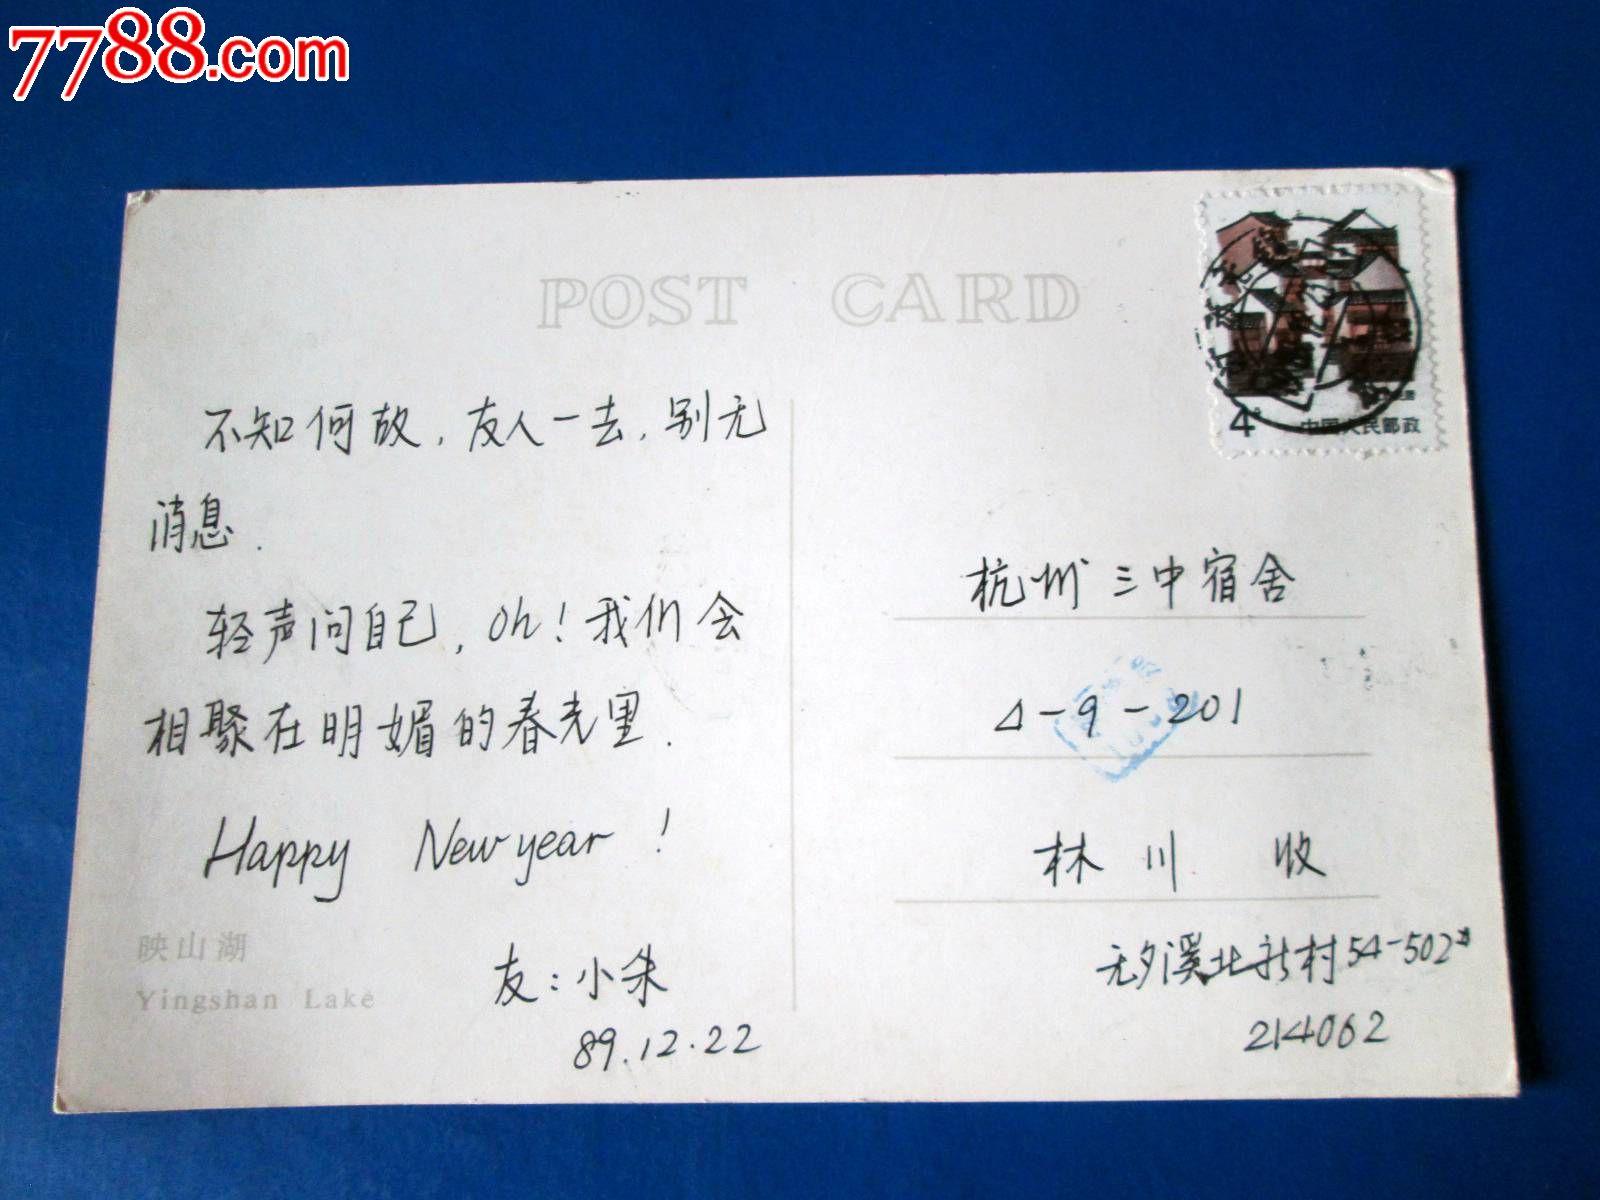 7788.com
POST CARD
4分
中国人民邮政
不知何故，友人一去，别无
消息.
轻声问自己，oh！我们会
相聚在明媚的春光里.
Happy New year！
友：小朱
89.12.22
映山湖
Yingshan Lake
杭州三中宿舍
4-9-201
林川 收
无夕溪北新村54-502
214062